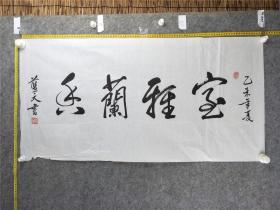 乙未年夏
室雅蘭香
藍天書